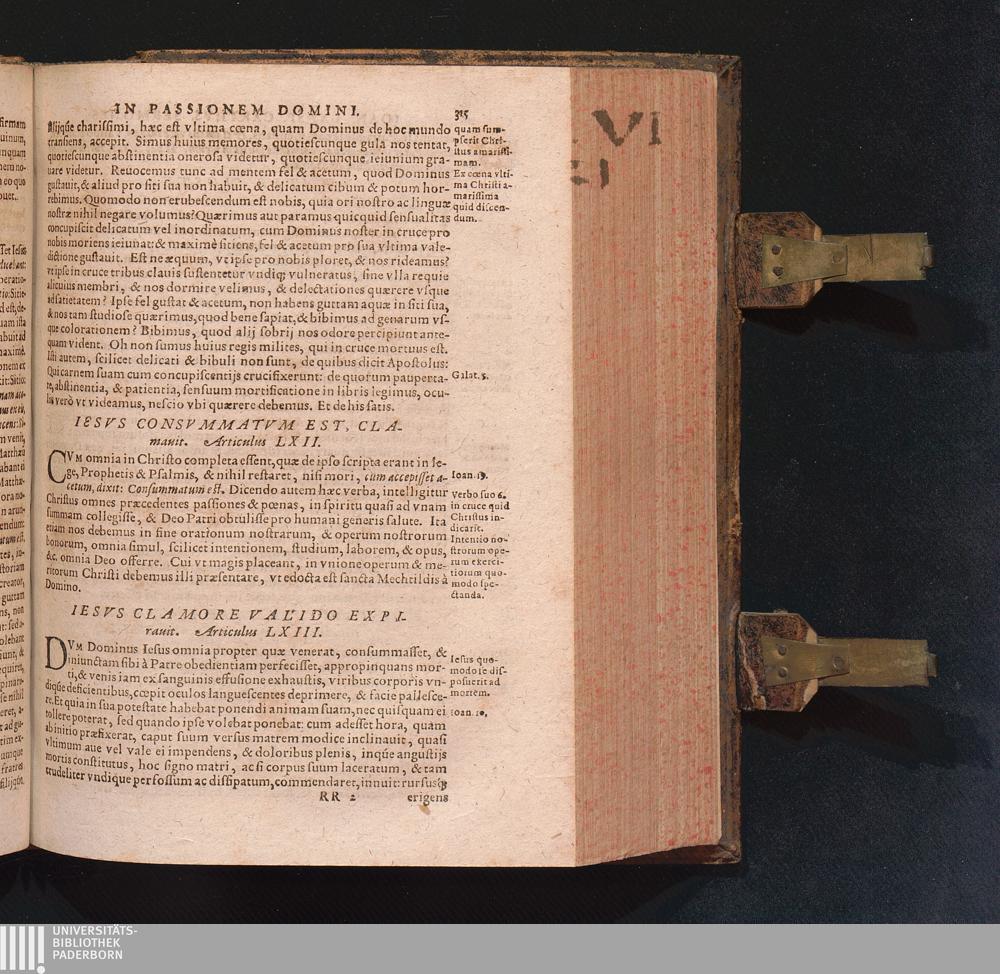 IN PASSIONEM DOMINI. 315
filijq́ue charissimi, hæc est vltima cœna, quam Dominus de hoc mundo
transiens, accepit. Simus huius memores, quotiescunque gula nos tentat,
quotiescunque abstinentia onerosa videtur, quotiescunque ieiunium gra-
uare videtur. Reuocemus tunc ad mentem fel & acetum, quod Dominus
gustauit, & aliud pro siti sua non habuit, & delicatum cibum & potum hor-
rebimus. Quomodo non erubescendum est nobis, quia ori nostro ac linguæ
nostræ nihil negare volumus? Quærimus aut paramus quicquid sensualitas
concupiscit delicatum vel inordinatum, cum Dominus noster in cruce pro
nobis moriens ieiunat: & maximè sitiens, fel & acetum pro sua vltima vale-
dictione gustauit. Est ne æquum, vt ipse pro nobis ploret, & nos rideamus?
vt ipse in cruce tribus clauis sustentetur vndiq; vulneratus, sine vlla requie
alicuius membri, & nos dormire velimus, & delectationes quærere vsque
ad satietatem? Ipse fel gustat & acetum, non habens guttam aquæ in siti sua,
& nos tam studiose quærimus, quod bene sapiat, & bibimus ad genarum vs-
que colorationem? Bibimus, quod alij sobrij nos odore percipiunt ante-
quam vident. Oh non sumus huius regis milites, qui in cruce mortuus est.
Isti autem, scilicet delicati & bibuli non sunt, de quibus dicit Apostolus:
Qui carnem suam cum concupiscentijs crucifixerunt: de quorum pauperta-
te, abstinentia, & patientia, sensuum mortificatione in libris legimus, ocu-
lis verò vt videamus, nescio vbi quærere debemus. Et de his satis.
quam sum-
pserit Chri-
stus amarissi-
mam.
Ex cœna vlti-
ma Christi a-
marissima
quid discen-
dum.
Galat. 5.
IESVS CONSVMMATVM EST, CLA-
mauit. Articulus LXII.
CVM omnia in Christo completa essent, quæ de ipso scripta erant in le-
ge, Prophetis & Psalmis, & nihil restaret, nisi mori, cum accepisset a-
cetum, dixit: Consummatum est. Dicendo autem hæc verba, intelligitur
Christus omnes præcedentes passiones & pœnas, in spiritu quasi ad vnam
summam collegisse, & Deo Patri obtulisse pro humani generis salute. Ita
etiam nos debemus in fine orationum nostrarum, & operum nostrorum
bonorum, omnia simul, scilicet intentionem, studium, laborem, & opus,
&c. omnia Deo offerre. Cui vt magis placeant, in vnione operum & me-
ritorum Christi debemus illi præsentare, vt edocta est sancta Mechtildis à
Domino.
Ioan. 19.
Verbo suo 6.
in cruce quid
Christus in-
dicarit.
Intentio no-
strorum ope-
rum exerci-
tiorum quo-
modo spe-
ctanda.
IESVS CLAMORE VALIDO EXPI-
rauit. Articulus LXIII.
DVM Dominus Iesus omnia propter quæ venerat, consummasset, &
iniunctam sibi à Patre obedientiam perfecisset, appropinquans mor-
ti, & venis iam ex sanguinis effusione exhaustis, viribus corporis vn-
dique deficientibus, cœpit oculos languescentes deprimere, & facie pallesce-
re. Et quia in sua potestate habebat ponendi animam suam, nec quisquam ei
tollere poterat, sed quando ipse volebat ponebat: cum adesset hora, quam
ab initio præfixerat, caput suum versus matrem modice inclinauit, quasi
vltimum aue vel vale ei impendens, & doloribus plenis, inq́ue angustijs
mortis constitutus, hoc signo matri, ac si corpus suum laceratum, & tam
crudeliter vndique perfossum ac dissipatum, commendaret, innuit: rursusq́;
Iesus quo-
modo se dis-
posuerit ad
mortem.
Ioan. 10.
RR 2 erigens
VI
UNIVERSITÄTS-
BIBLIOTHEK
PADERBORN